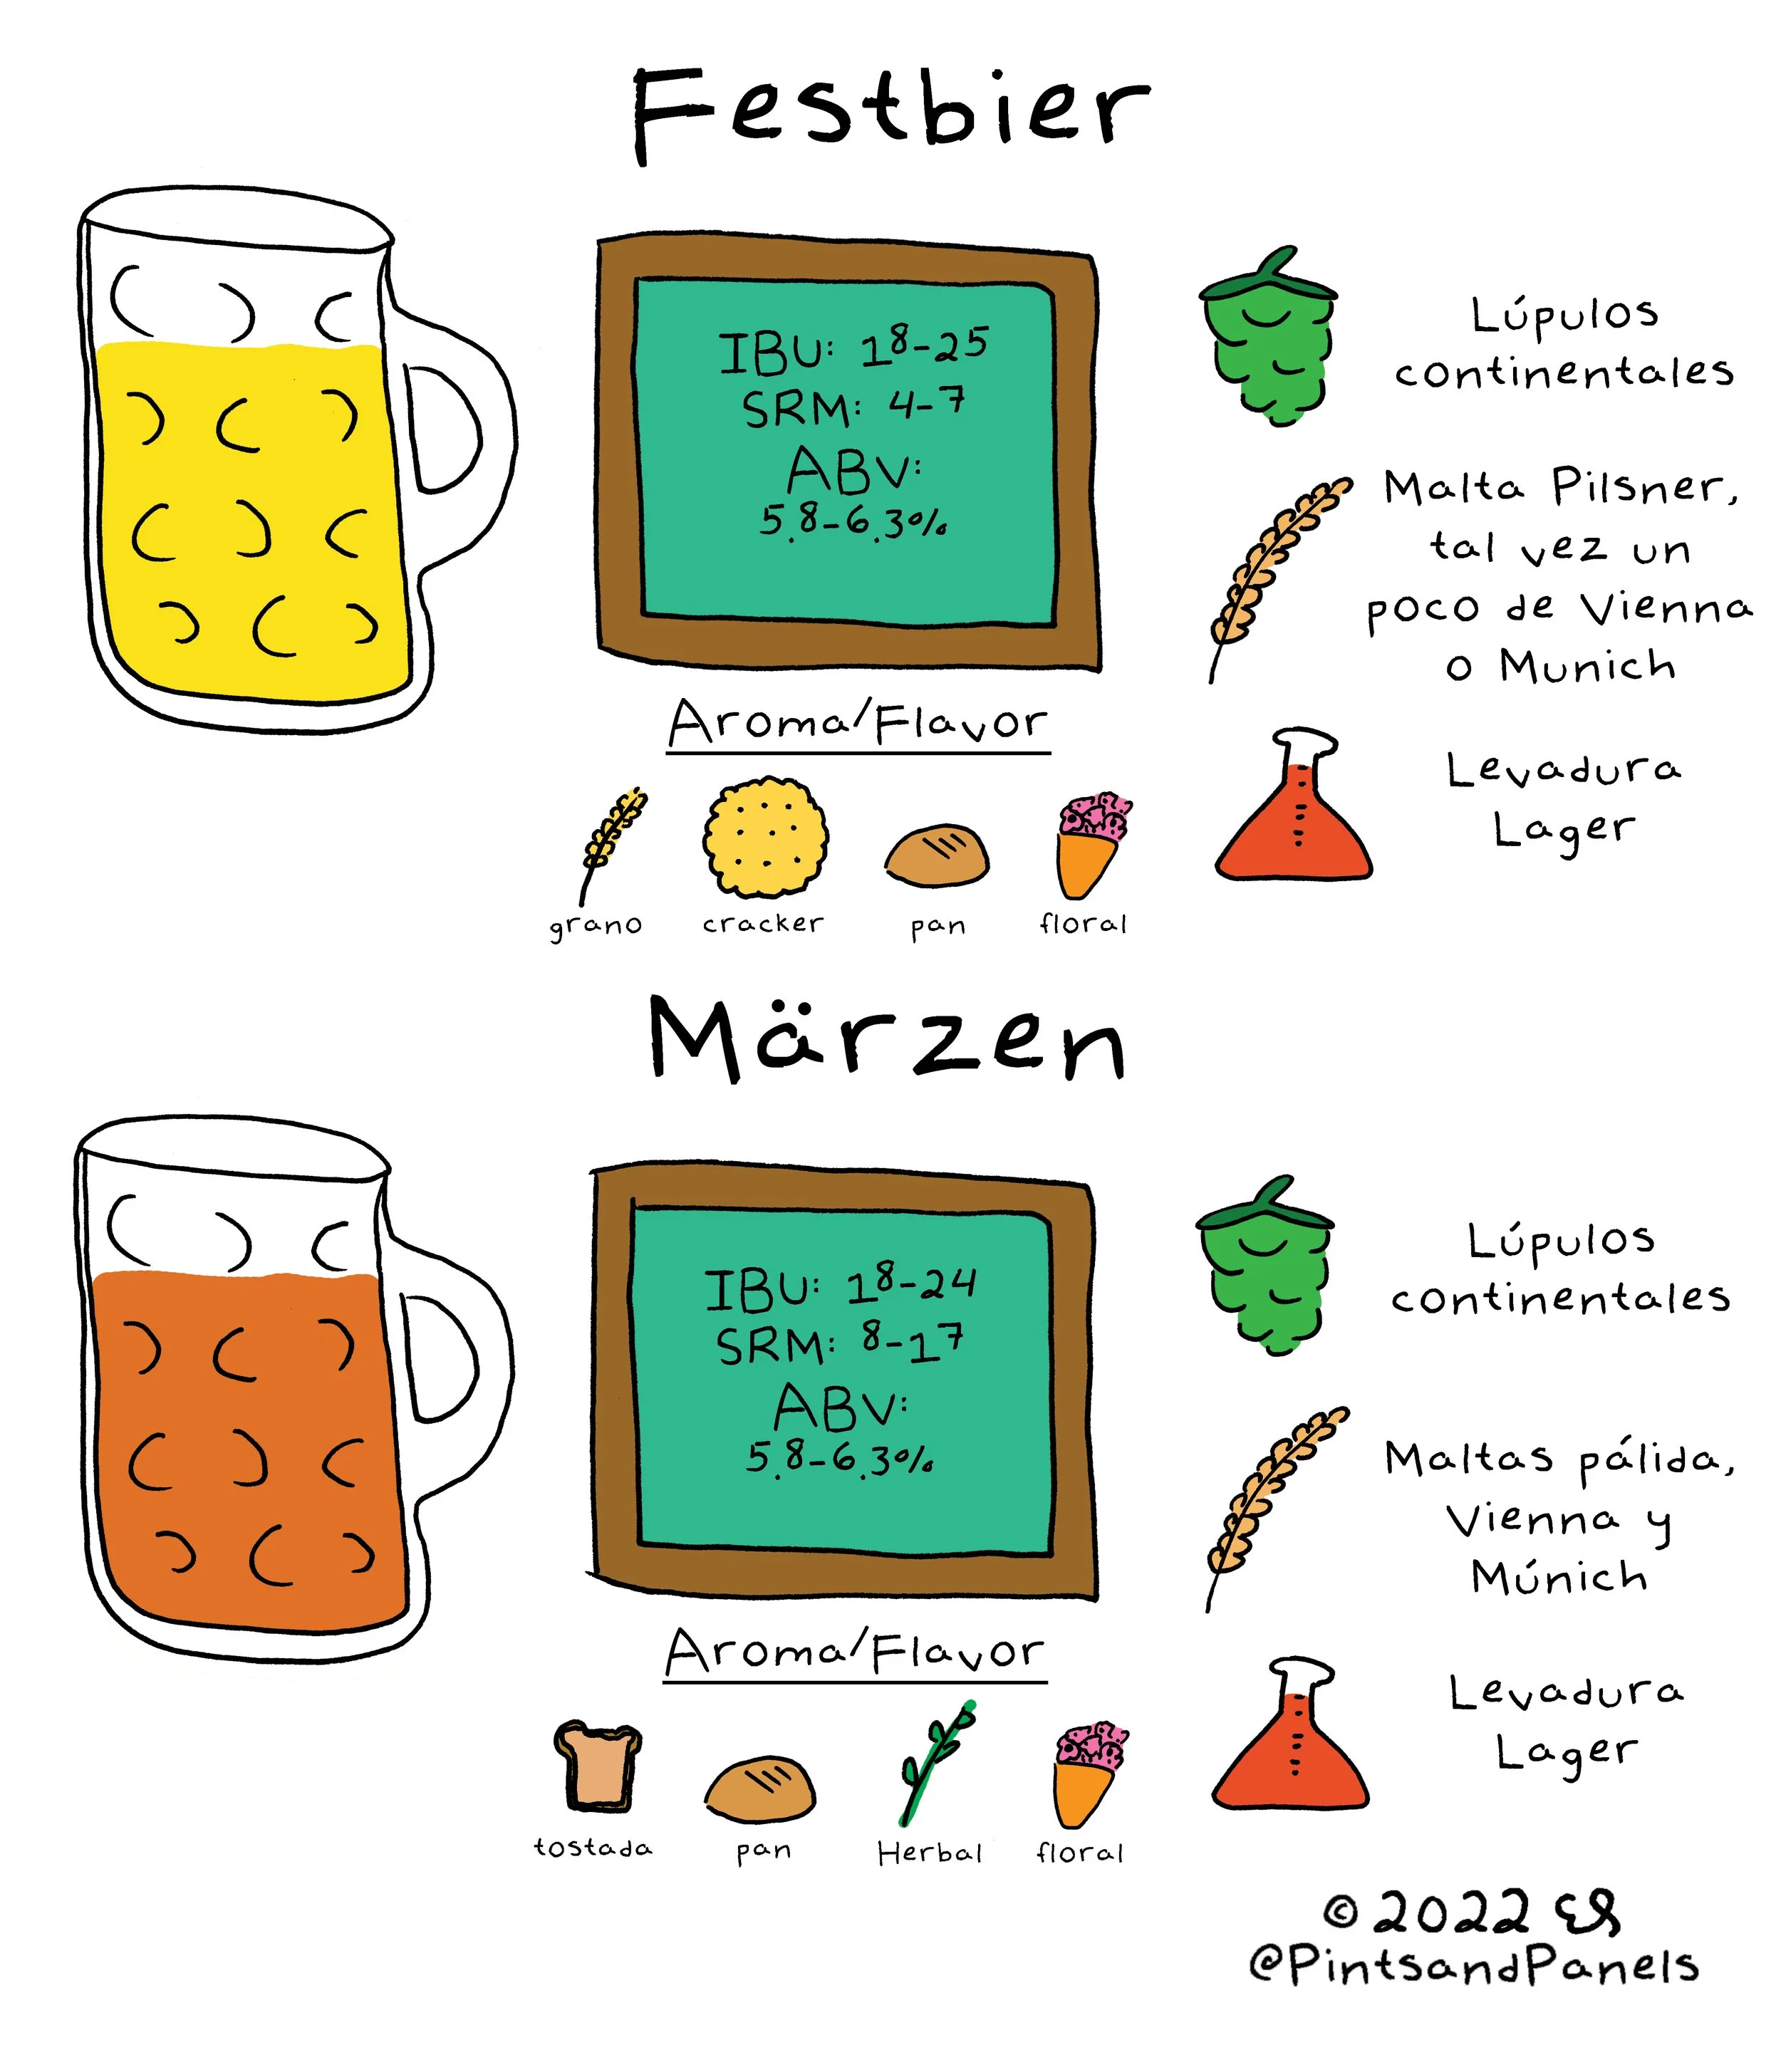 Festbier
IBU: 18-25
SRM: 4-7
ABV:
5.8-6.3%
Lúpulos
continentales
Malta Pilsner,
tal vez un
poco de Vienna
o Munich
Levadura
Lager
Aroma/Flavor
grano
cracker
pan
floral
Märzen
IBU: 18-24
SRM: 8-17
ABV:
5.8-6.3%
Lúpulos
continentales
Maltas pálida,
Vienna y
Múnich
Levadura
Lager
Aroma/Flavor
tostada
pan
Herbal
floral
© 2022
@PintsandPanels